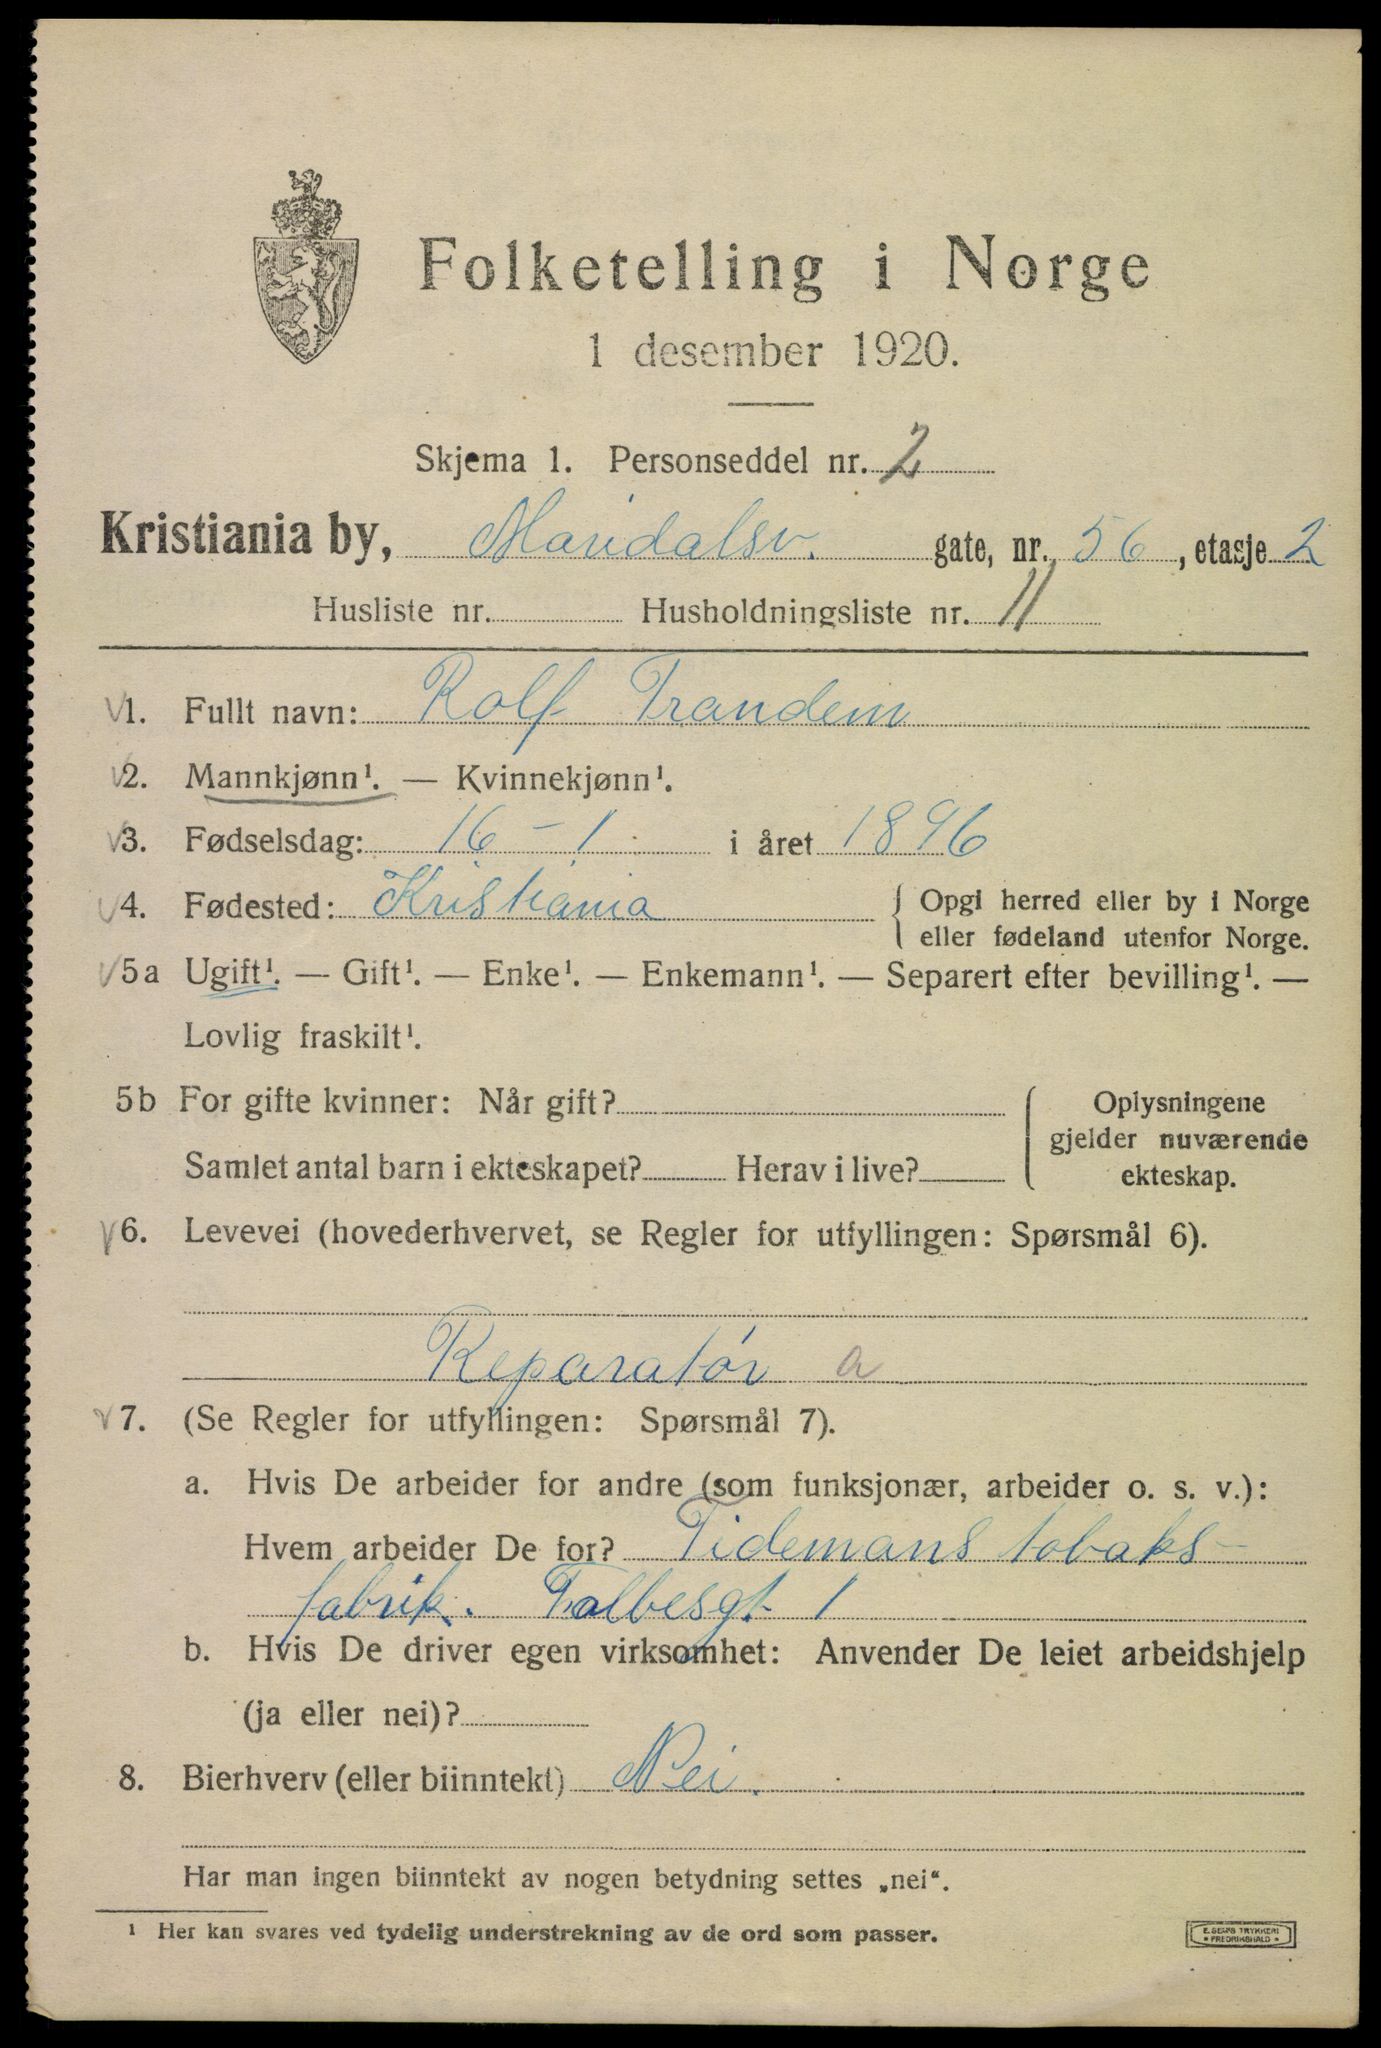 Folketelling i Norge
1 desember 1920.
Skjema 1. Personseddel nr. 2
Kristiania by, Maridalsv. gate, nr. 56, etasje 2
Husliste nr. Husholdningsliste nr. 11
√1. Fullt navn: Rolf Trandem
√2. Mannkjønn¹. — Kvinnekjønn¹.
√3. Fødselsdag: 16 – 1 i året 1896
√4. Fødested: Kristiania { Opgi herred eller by i Norge
eller fødeland utenfor Norge.
√5a Ugift¹. — Gift¹. — Enke¹. — Enkemann¹. — Separert efter bevilling¹. —
Lovlig fraskilt¹.
5b For gifte kvinner: Når gift? { Oplysningene
gjelder nuværende
Samlet antal barn i ekteskapet? Herav i live? ekteskap.
√6. Levevei (hovederhvervet, se Regler for utfyllingen: Spørsmål 6).
Reparatør a
√7. (Se Regler for utfyllingen: Spørsmål 7).
a. Hvis De arbeider for andre (som funksjonær, arbeider o. s. v.):
Hvem arbeider De for? Tidemans tobaks-
fabrik. Falbesgt. 1
b. Hvis De driver egen virksomhet: Anvender De leiet arbeidshjelp
(ja eller nei)?
8. Bierhverv (eller biinntekt) Nei.
Har man ingen biinntekt av nogen betydning settes „nei“.
¹ Her kan svares ved tydelig understrekning av de ord som passer.
E. SEM'S TRYKKERI
• FREDRIKSHALD •